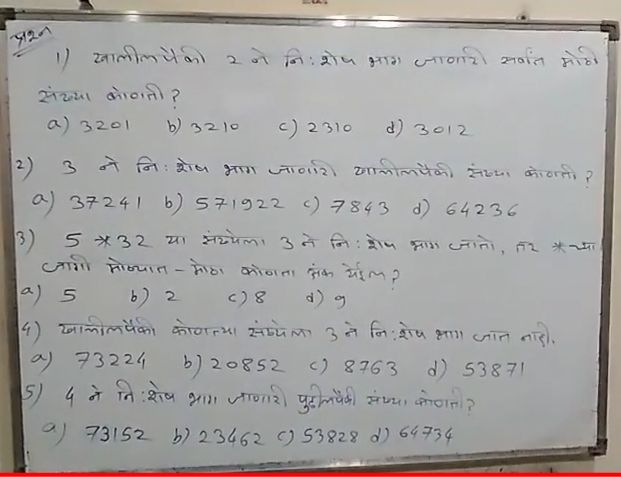 प्रश्न
1) खालीलपैकी 2 ने नि:शेष भाग जाणारी सर्वात मोठी
संख्या कोणती?
a) 3201 b) 3210 c) 2310 d) 3012
2) 3 ने नि:शेष भाग जाणारी खालीलपैकी संख्या कोणती?
a) 37241 b) 571922 c) 7843 d) 64236
3) 5*32 या संख्येला 3 ने नि:शेष भाग जातो, तर * च्या
जागी मोठ्यात-मोठा कोणता अंक येईल?
a) 5 b) 2 c) 8 d) 9
4) खालीलपैकी कोणत्या संख्येला 3 ने नि:शेष भाग जात नाही.
a) 73224 b) 20852 c) 8763 d) 53871
5) 4 ने नि:शेष भाग जाणारी पुढीलपैकी संख्या कोणती?
a) 73152 b) 23462 c) 53828 d) 64734